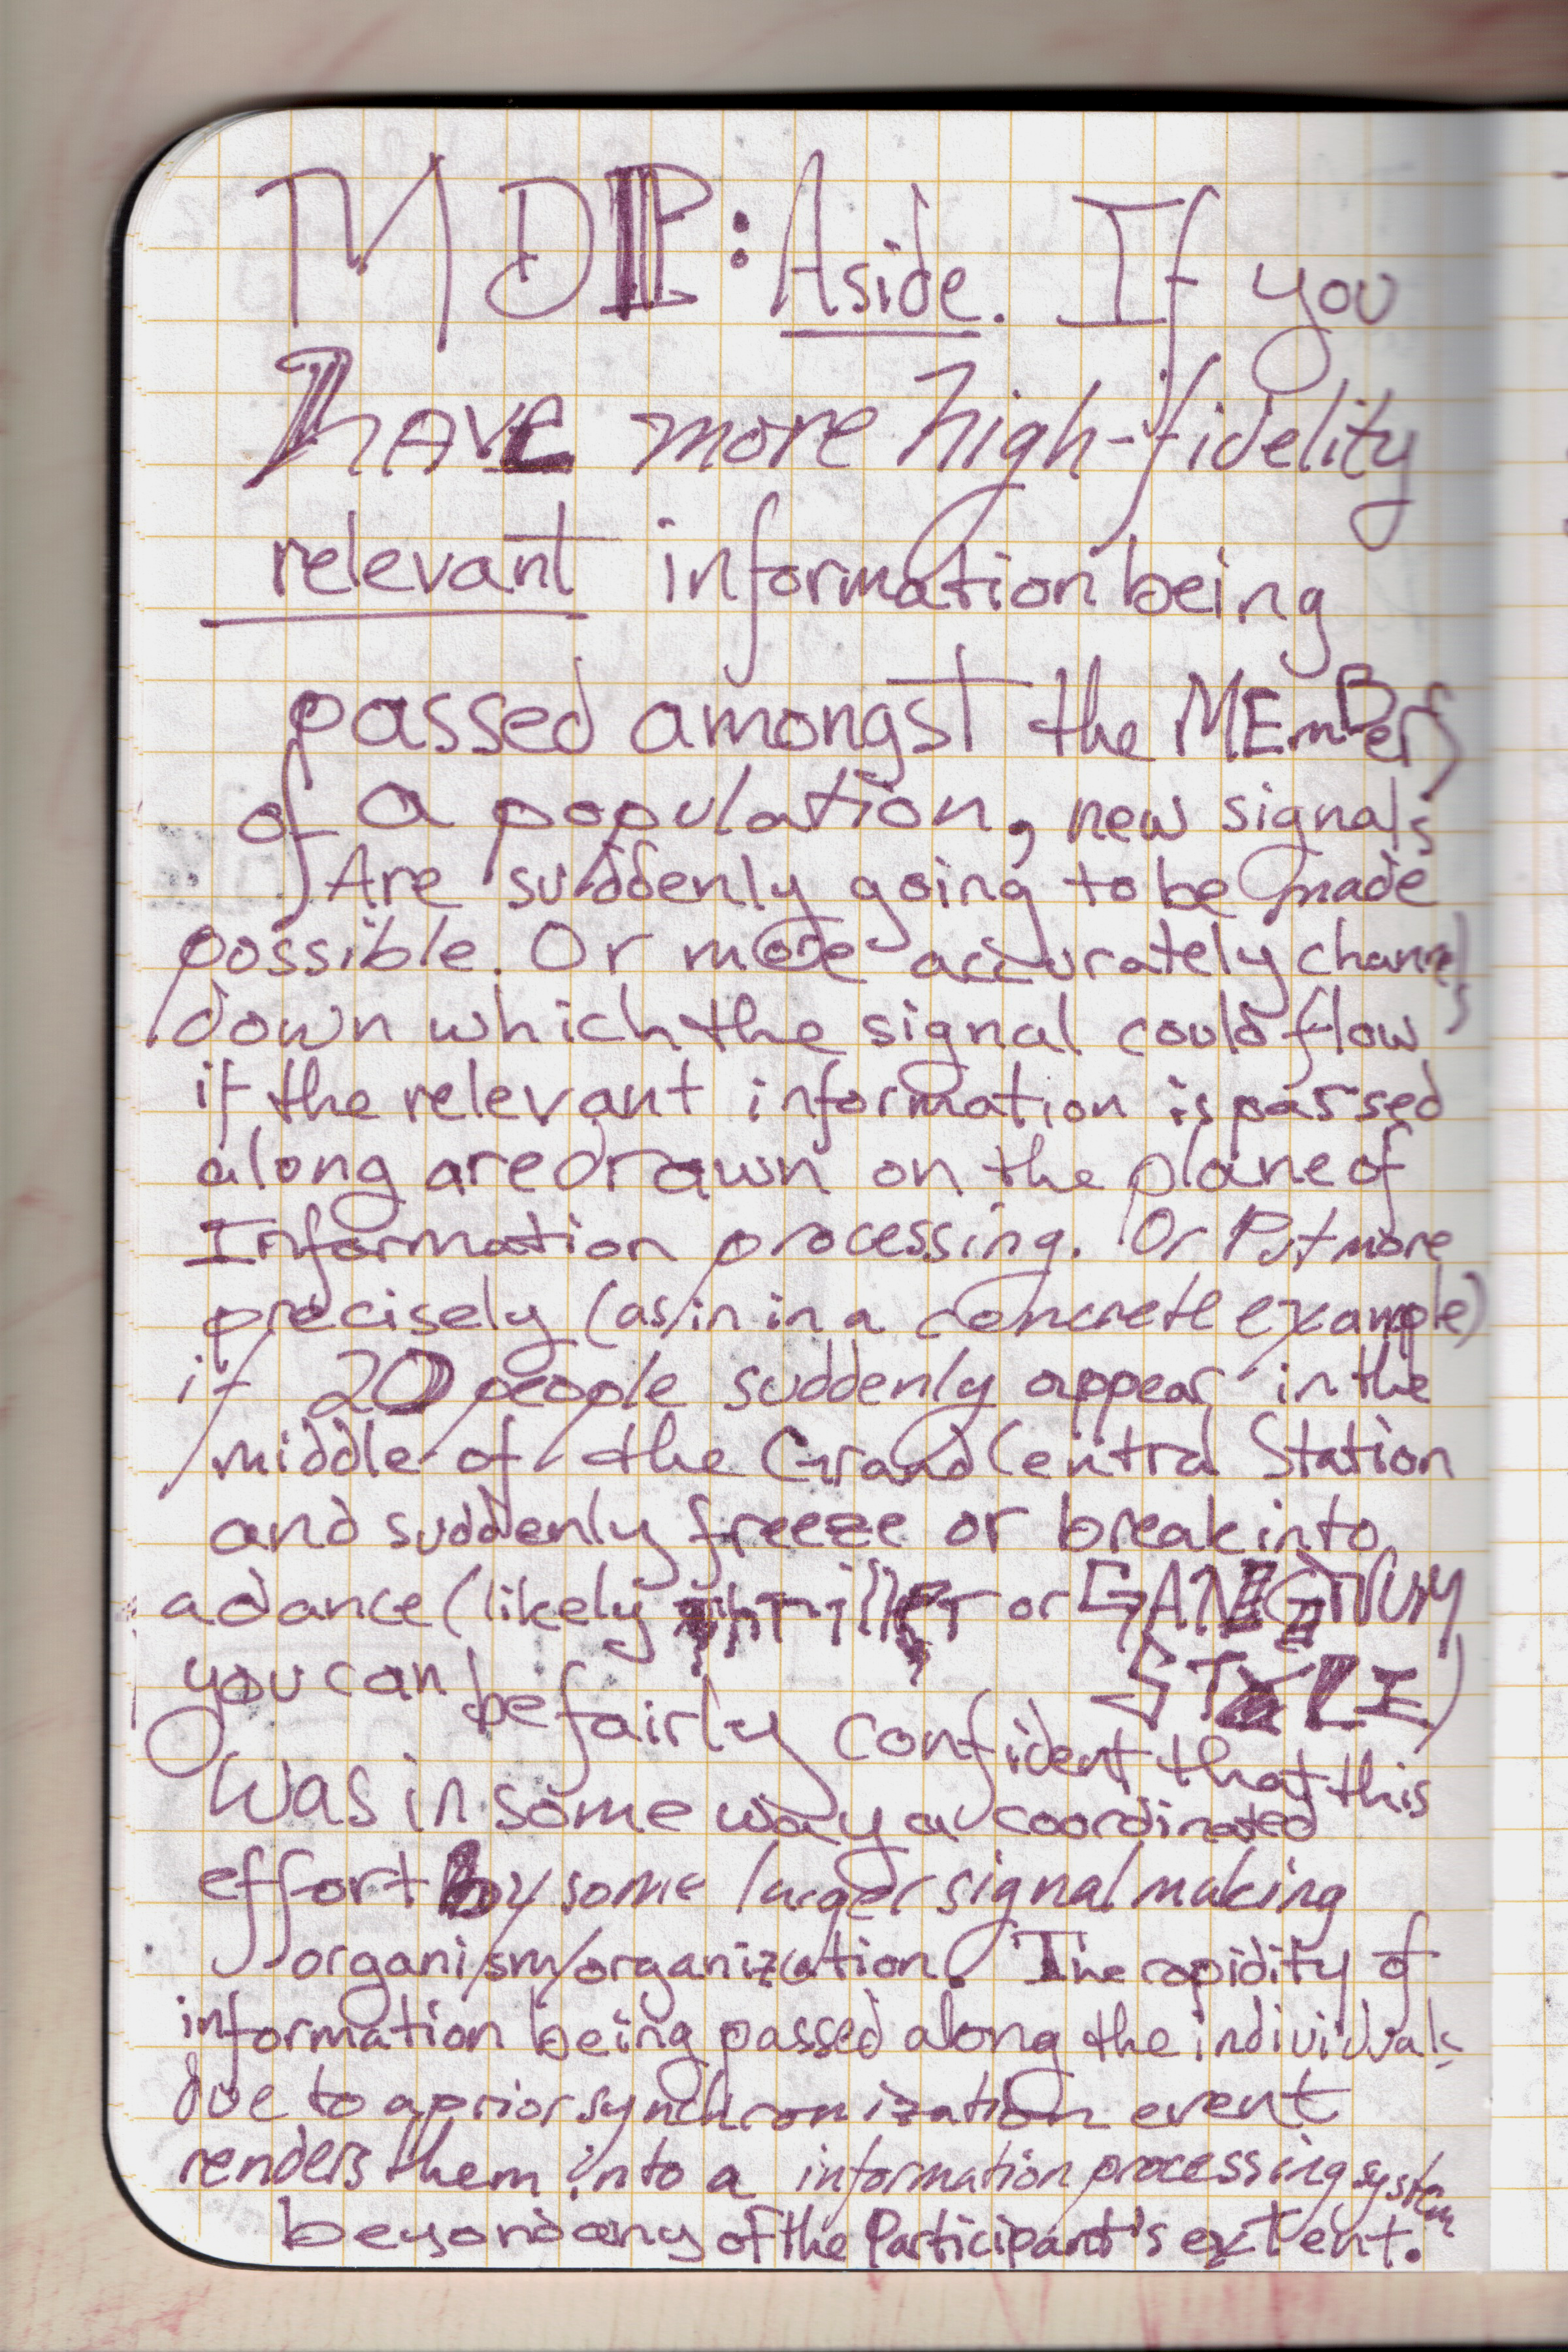 MDP: Aside. If you
have more high-fidelity
relevant information being
passed amongst the MEmBers
of a population, new signals
Are suddenly going to be made
possible. Or more accurately channels
down which the signal could flow
if the relevant information is passed
along are drawn on the plane of
Information processing. Or Put more
precisely (as in in a concrete example)
if 20 people suddenly appear in the
middle of the Grand Central Station
and suddenly freeze or break into
a dance (likely thriller or GANGNUM
STYLE)
you can be fairly confident that this
Was in some way a coordinated
effort by some larger signal making
organism/organization. The rapidity of
information being passed along the individuals
due to a prior synchronization event
renders them into a information processing system
beyond any of the Participant's extent.